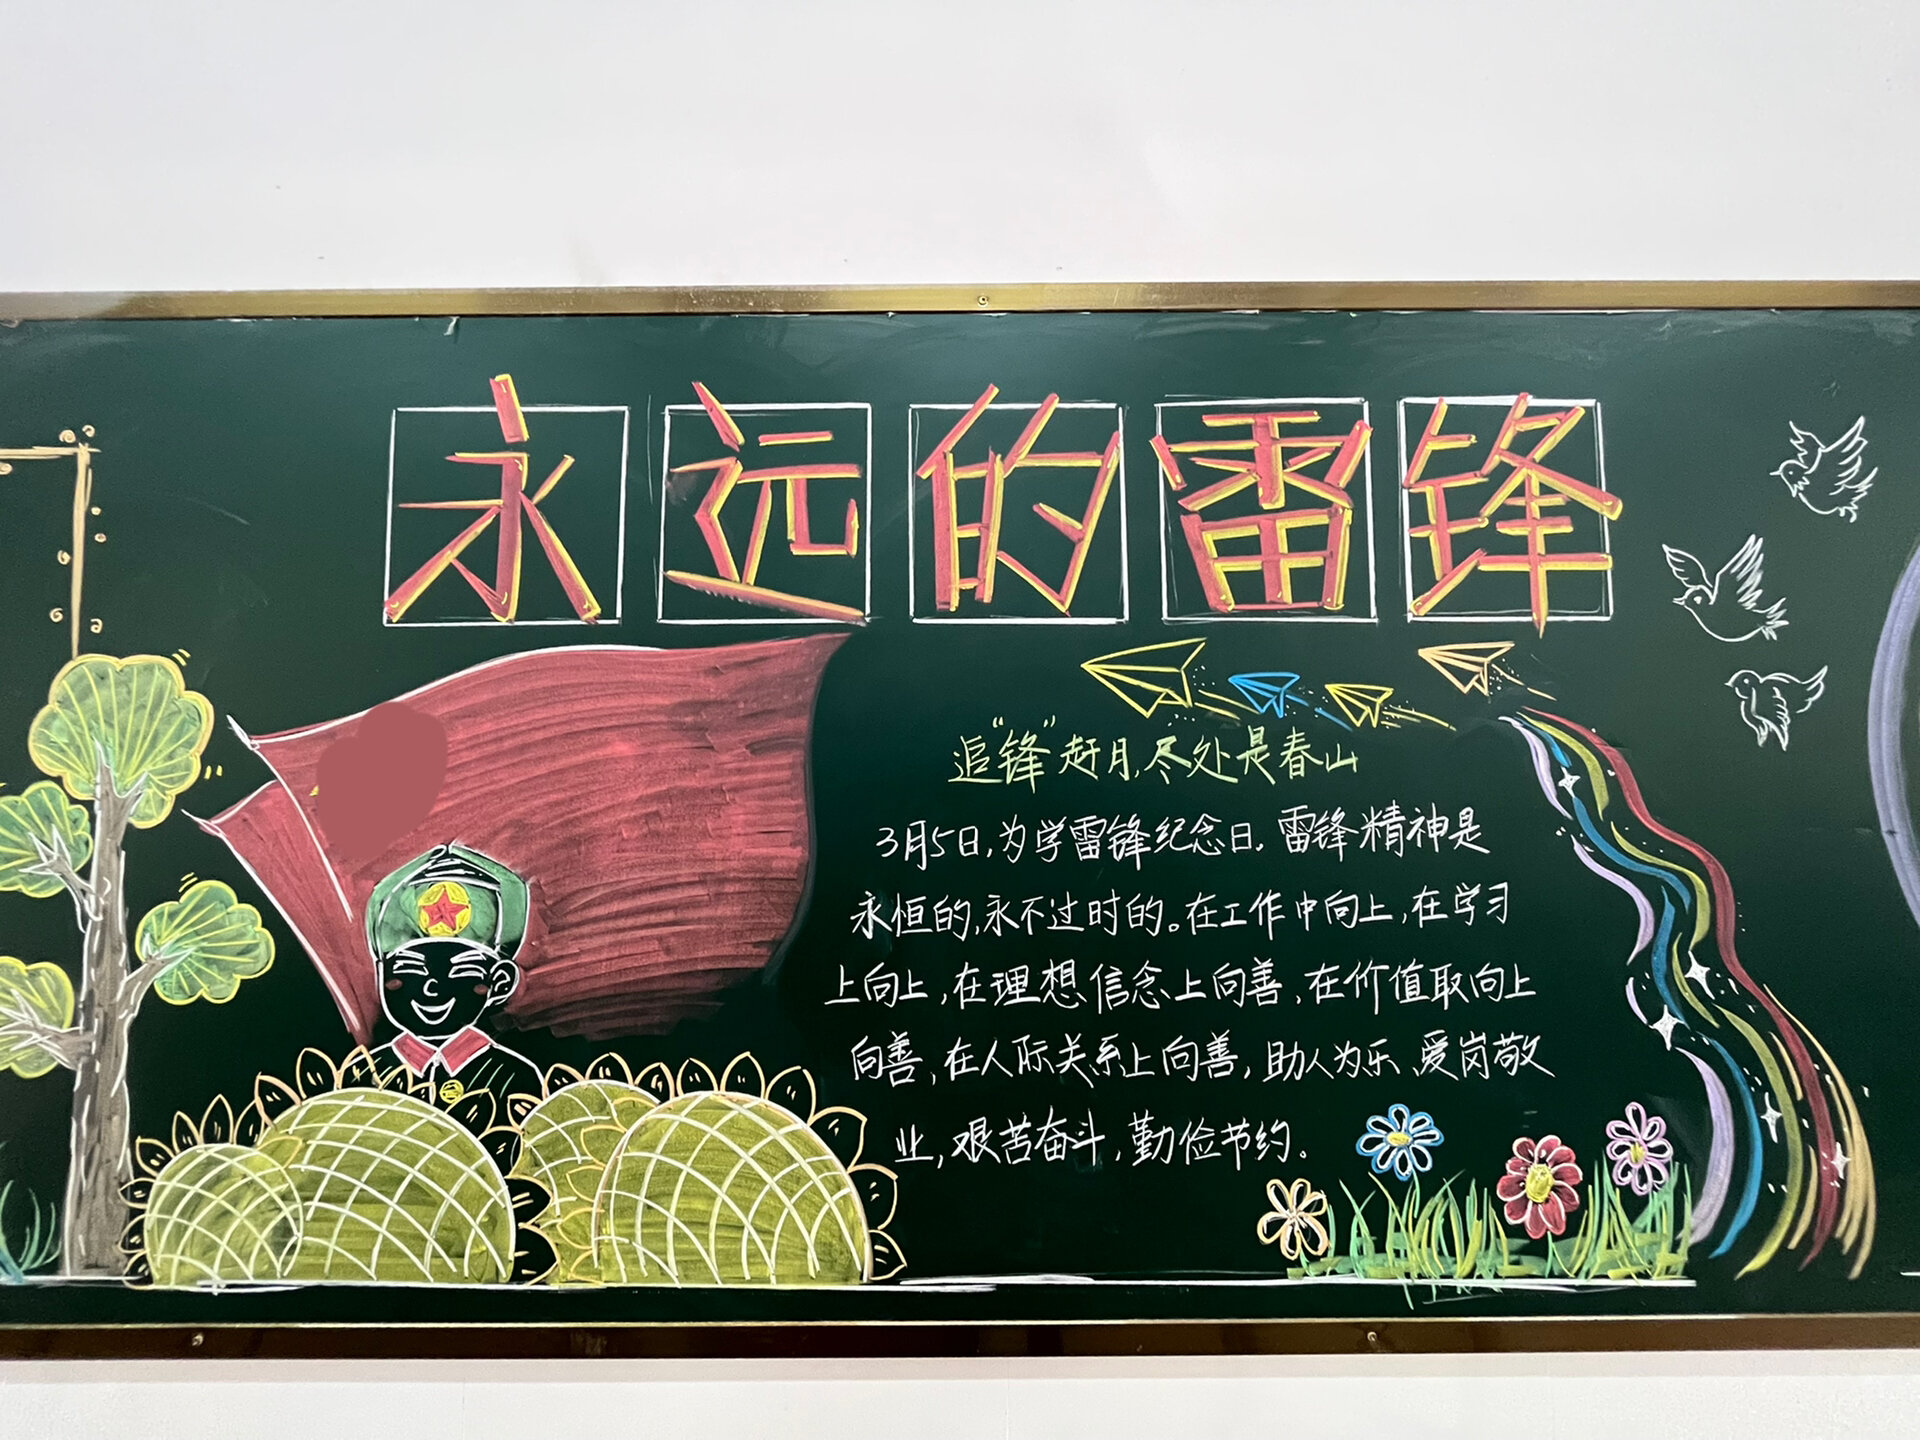 永远的雷锋
追“锋”赶月,尽处是春山
3月5日,为学雷锋纪念日.雷锋精神是
永恒的,永不过时的。在工作中向上,在学习
上向上,在理想信念上向善,在价值取向上
向善,在人际关系上向善,助人为乐、爱岗敬
业,艰苦奋斗,勤俭节约。